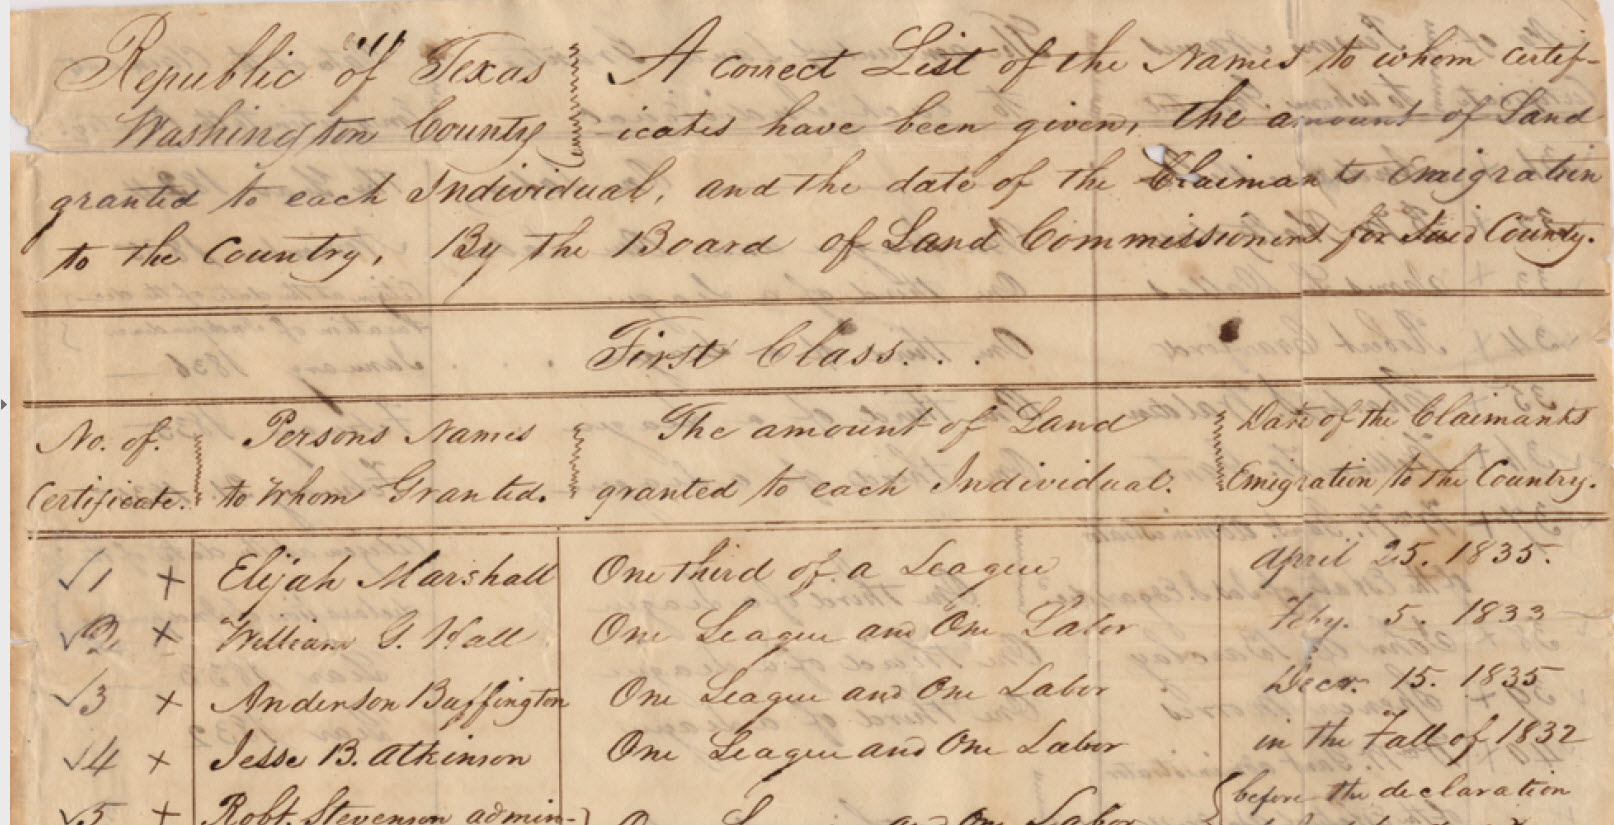 Republic of Texas A correct List of the Names to whom certif-
Washington County icates have been given, the amount of Land
granted to each Individual, and the date of the Claimants Emigration
to the Country, By the Board of Land Commissioners for Said County.
First Class. . .
No. of. Persons Names The amount of Land Date of the Claimants
Certificate. to Whom Granted. granted to each Individual. Emigration to the Country.
√1 + Elijah Marshall One third of a League April 25. 1835.
√2 x William G. Hall One League and One Labor Feby. 5. 1833
√3 x Anderson Buffington One League and One Labor Decr. 15. 1835
√4 x Jesse B. Atkinson One League and One Labor in the Fall of 1832
√5 + Robt. Stevenson admin- One League and One Labor before the declaration